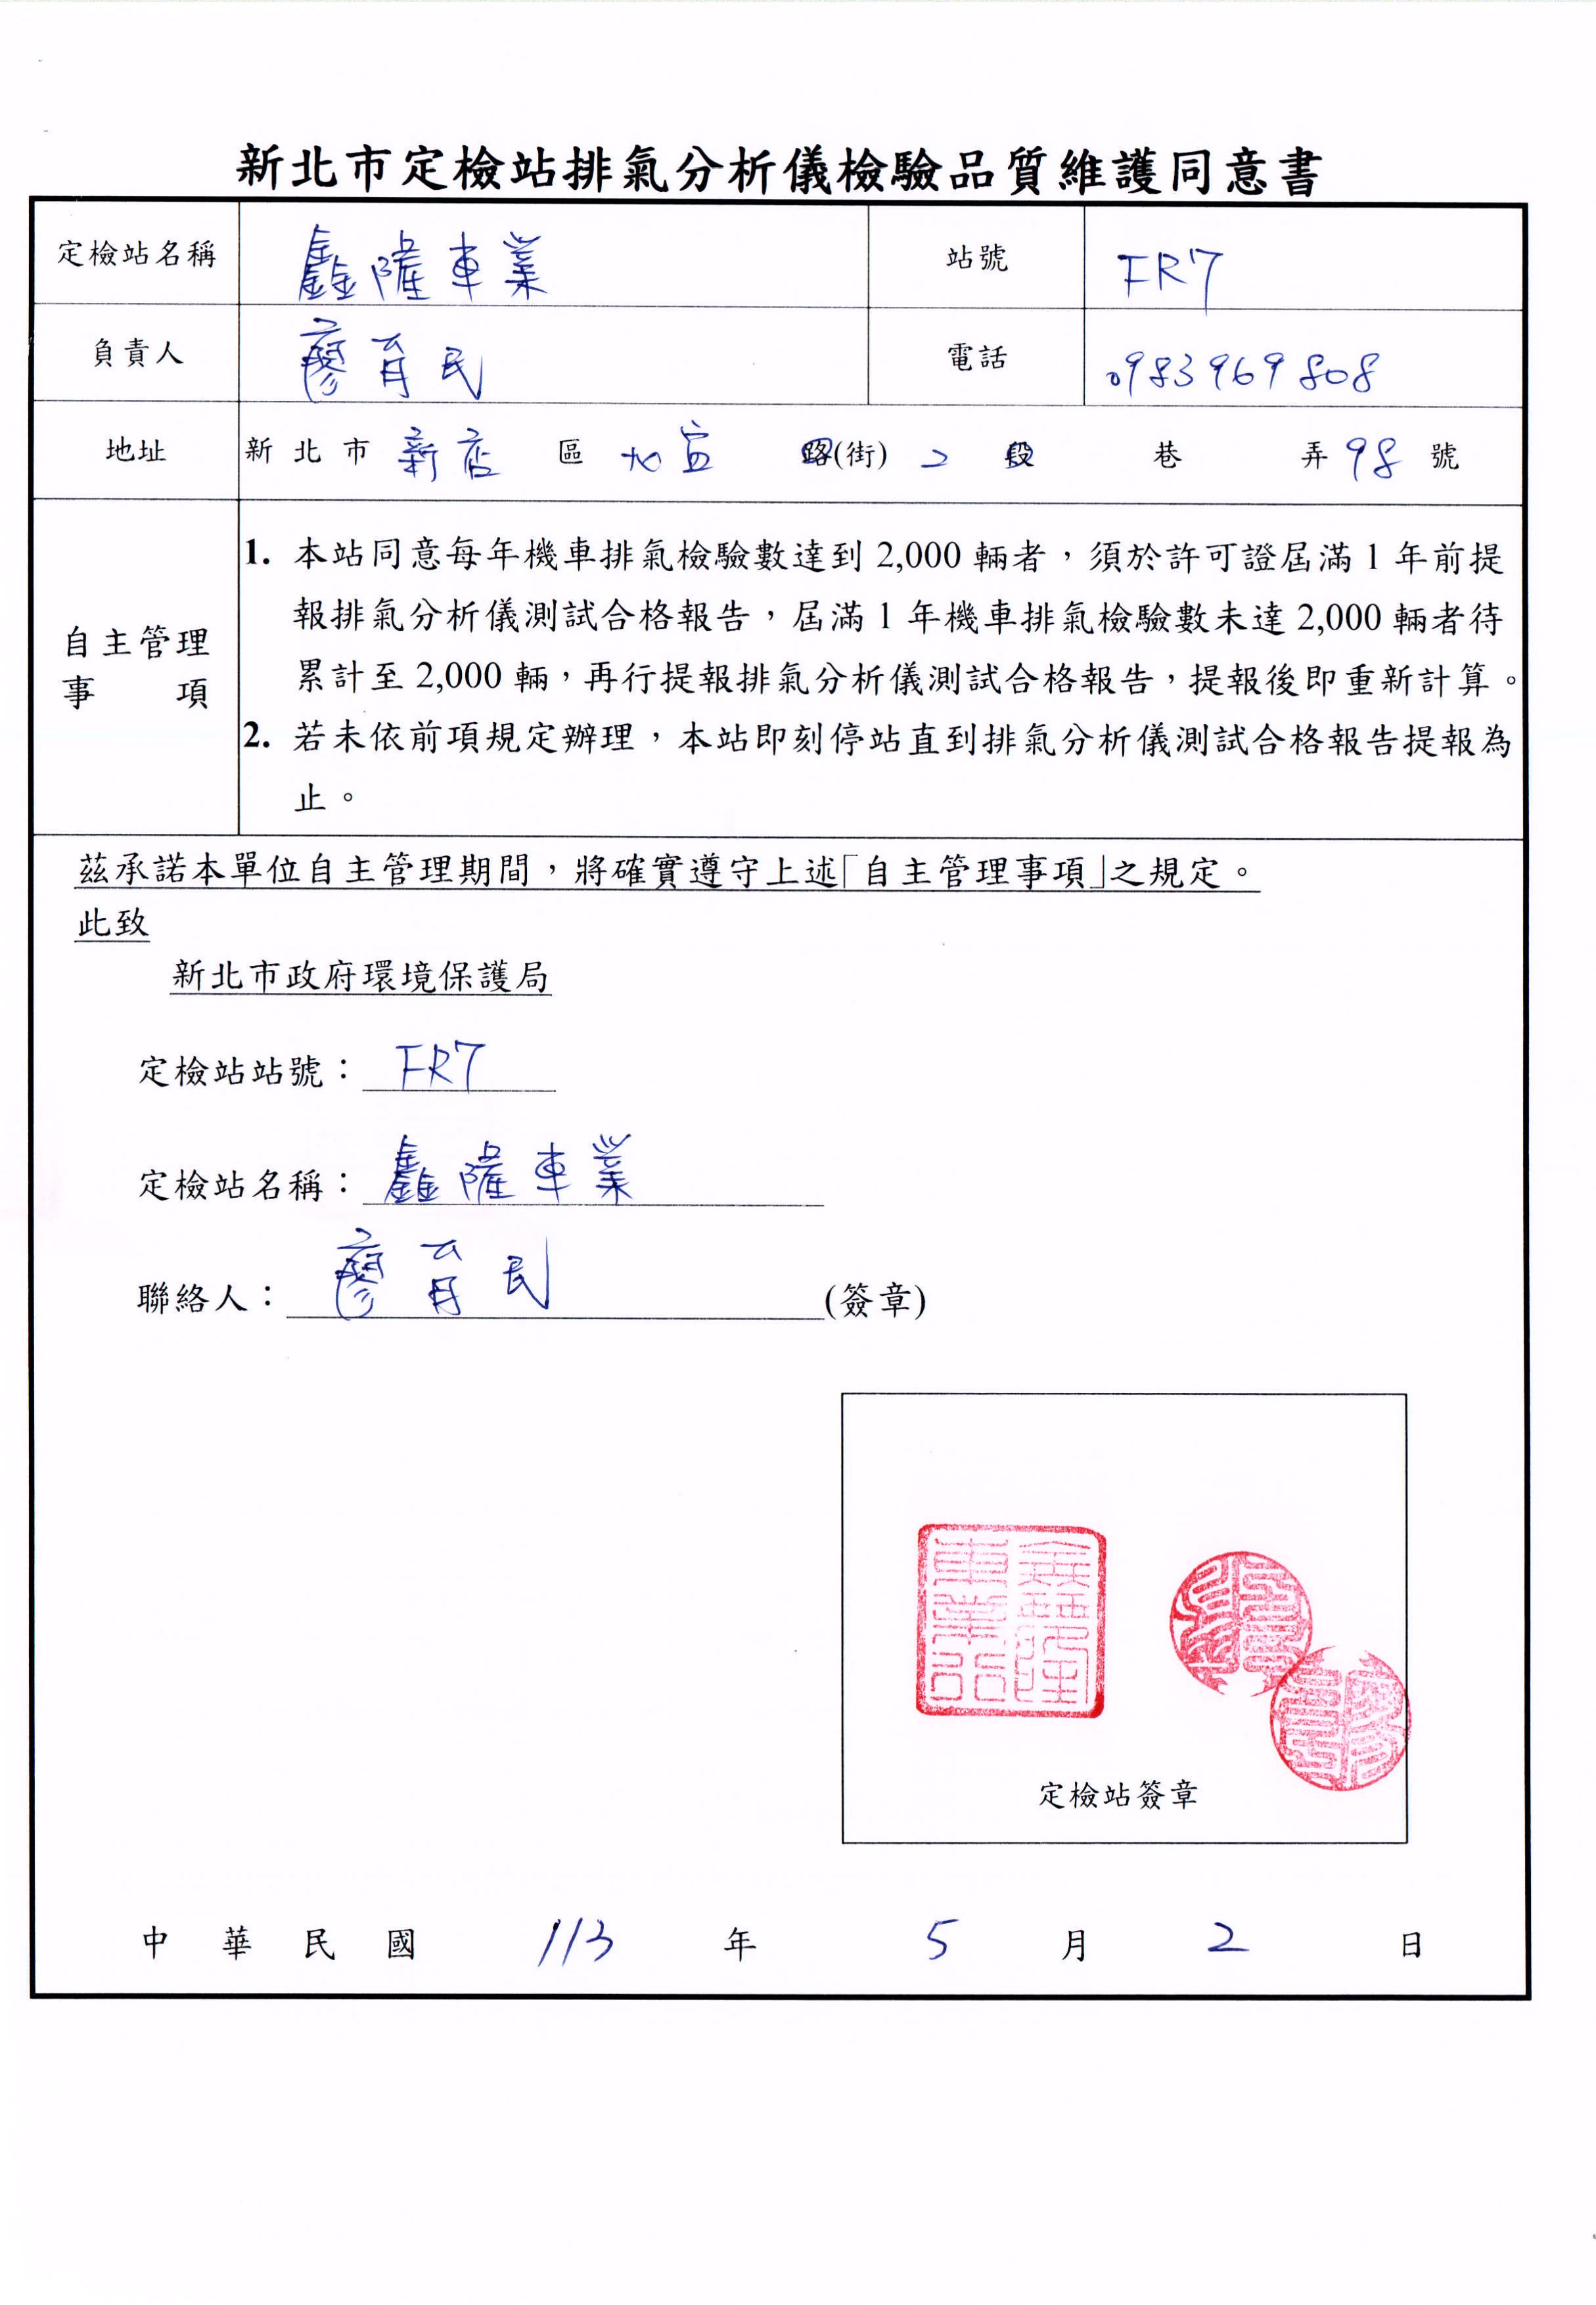 新北市定檢站排氣分析儀檢驗品質維護同意書
定檢站名稱 鑫隆車業 站號 FR7
負責人 廖育民 電話 0983969808
地址 新北市 新店 區 北宜 路(街) 二 段 巷 弄 98 號
自主管理事項
1. 本站同意每年機車排氣檢驗數達到 2,000 輛者，須於許可證屆滿 1 年前提
報排氣分析儀測試合格報告，屆滿 1 年機車排氣檢驗數未達 2,000 輛者待
累計至 2,000 輛，再行提報排氣分析儀測試合格報告，提報後即重新計算。
2. 若未依前項規定辦理，本站即刻停站直到排氣分析儀測試合格報告提報為
止。
茲承諾本單位自主管理期間，將確實遵守上述「自主管理事項」之規定。
此致
新北市政府環境保護局
定檢站站號：FR7
定檢站名稱：鑫隆車業
聯絡人：廖育民 (簽章)
鑫隆車業行
定檢站簽章
中華民國 113 年 5 月 2 日